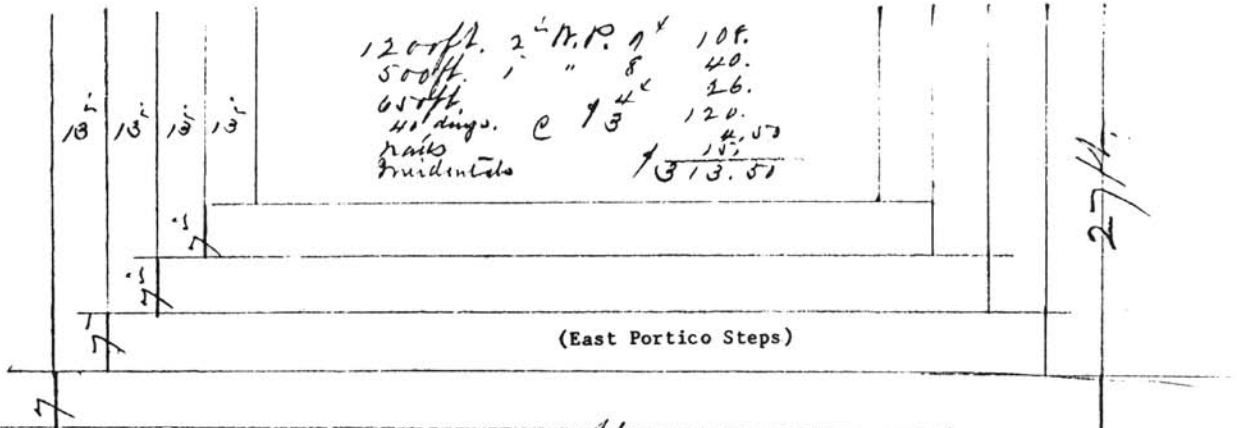 1200 ft. 2 in W.P. 9¢ 108.
500 ft. 1 " " 8 40.
650 ft. 4¢ 26.
40 days. @ $3 120.
nails 4.50
Incidentals 15.
$313.50
13 in 13 in 13 in 13 in
7 in
7 in
7
7
27 ft.
(East Portico Steps)